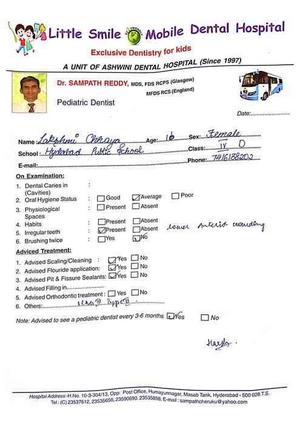 Little Smile Mobile Dental Hospital
Exclusive Dentistry for kids
A UNIT OF ASHWINI DENTAL HOSPITAL (Since 1997)
Dr. SAMPATH REDDY, MDS, FDS RCPS (Glasgow)
MFDS RCS (England)
Pediatric Dentist
Date:
Name: Lakshmi Chhaya Age: 10 Sex: Female
School: Hyderabad Public School Class: IV D
E-mail: Phone:
On Examination:
1. Dental Caries in :
(Cavities)
2. Oral Hygiene Status : Good Average Poor
3. Physiological : Present Absent
Spaces
4. Habits : Present Absent
5. Irregular teeth : Present Absent lower anterior crowding
6. Brushing twice : Yes No
Adviced Treatment:
1. Advised Scaling/Cleaning : Yes No
2. Advised Flouride application: Yes No
3. Advised Pit & Fissure Sealants: Yes No
4. Advised Filling in
5. Advised Orthodontic treatment : Yes No
6. Others:
Note: Advised to see a pediatric dentist every 3-6 months Yes No
Hospital Address: H.No. 10-3-304/13, Opp: Post Office, Humayunnagar, Masab Tank, Hyderabad - 500 028 T.S.
Tel: (C) 23537612, 23535658, 23590690, 23535658, E.mail : sampathcheruku@yahoo.com